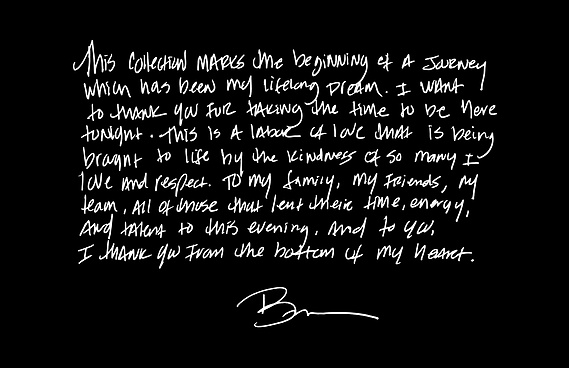 This Collection MARKS the beginning of A Journey
which has been my lifelong Dream. I WANT
to thank you for taking the time to be here
tonight. This is A labor of love that is being
brought to life by the kindness of so many I
love and respect. To my family, my friends, my
team, All of those that lent their time, energy,
And talent to this evening. And to you,
I thank you from the bottom of my heart.